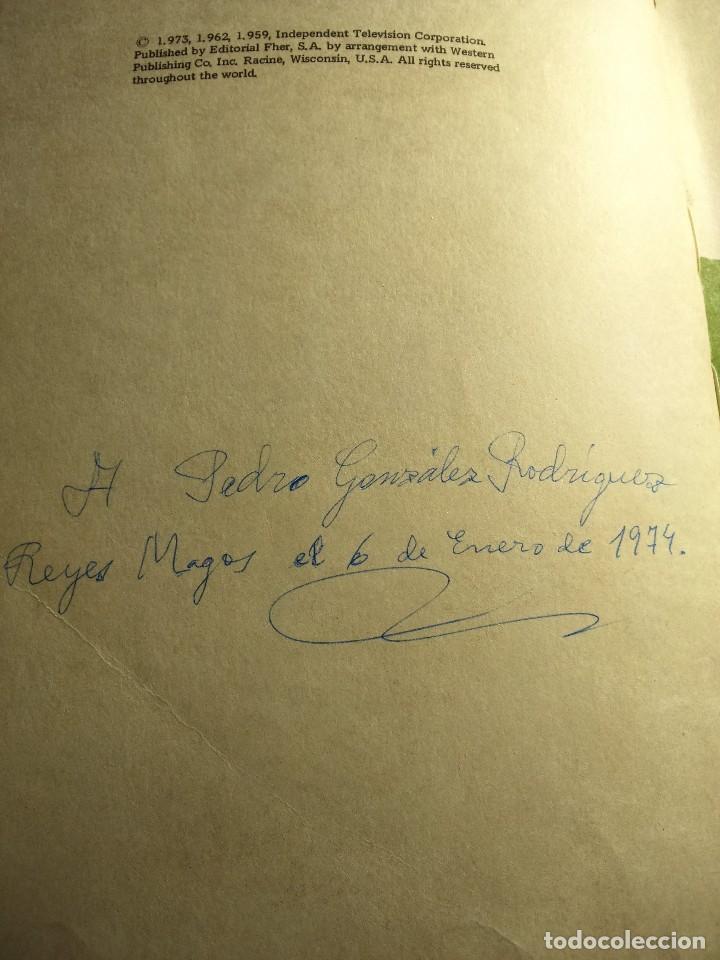 © 1.973, 1.962, 1.959, Independent Television Corporation.
Published by Editorial Fher, S.A. by arrangement with Western
Publishing Co. Inc. Racine, Wisconsin, U.S.A. All rights reserved
throughout the world.
A Pedro González Rodríguez
Reyes Magos el 6 de Enero de 1974.
todocoleccion